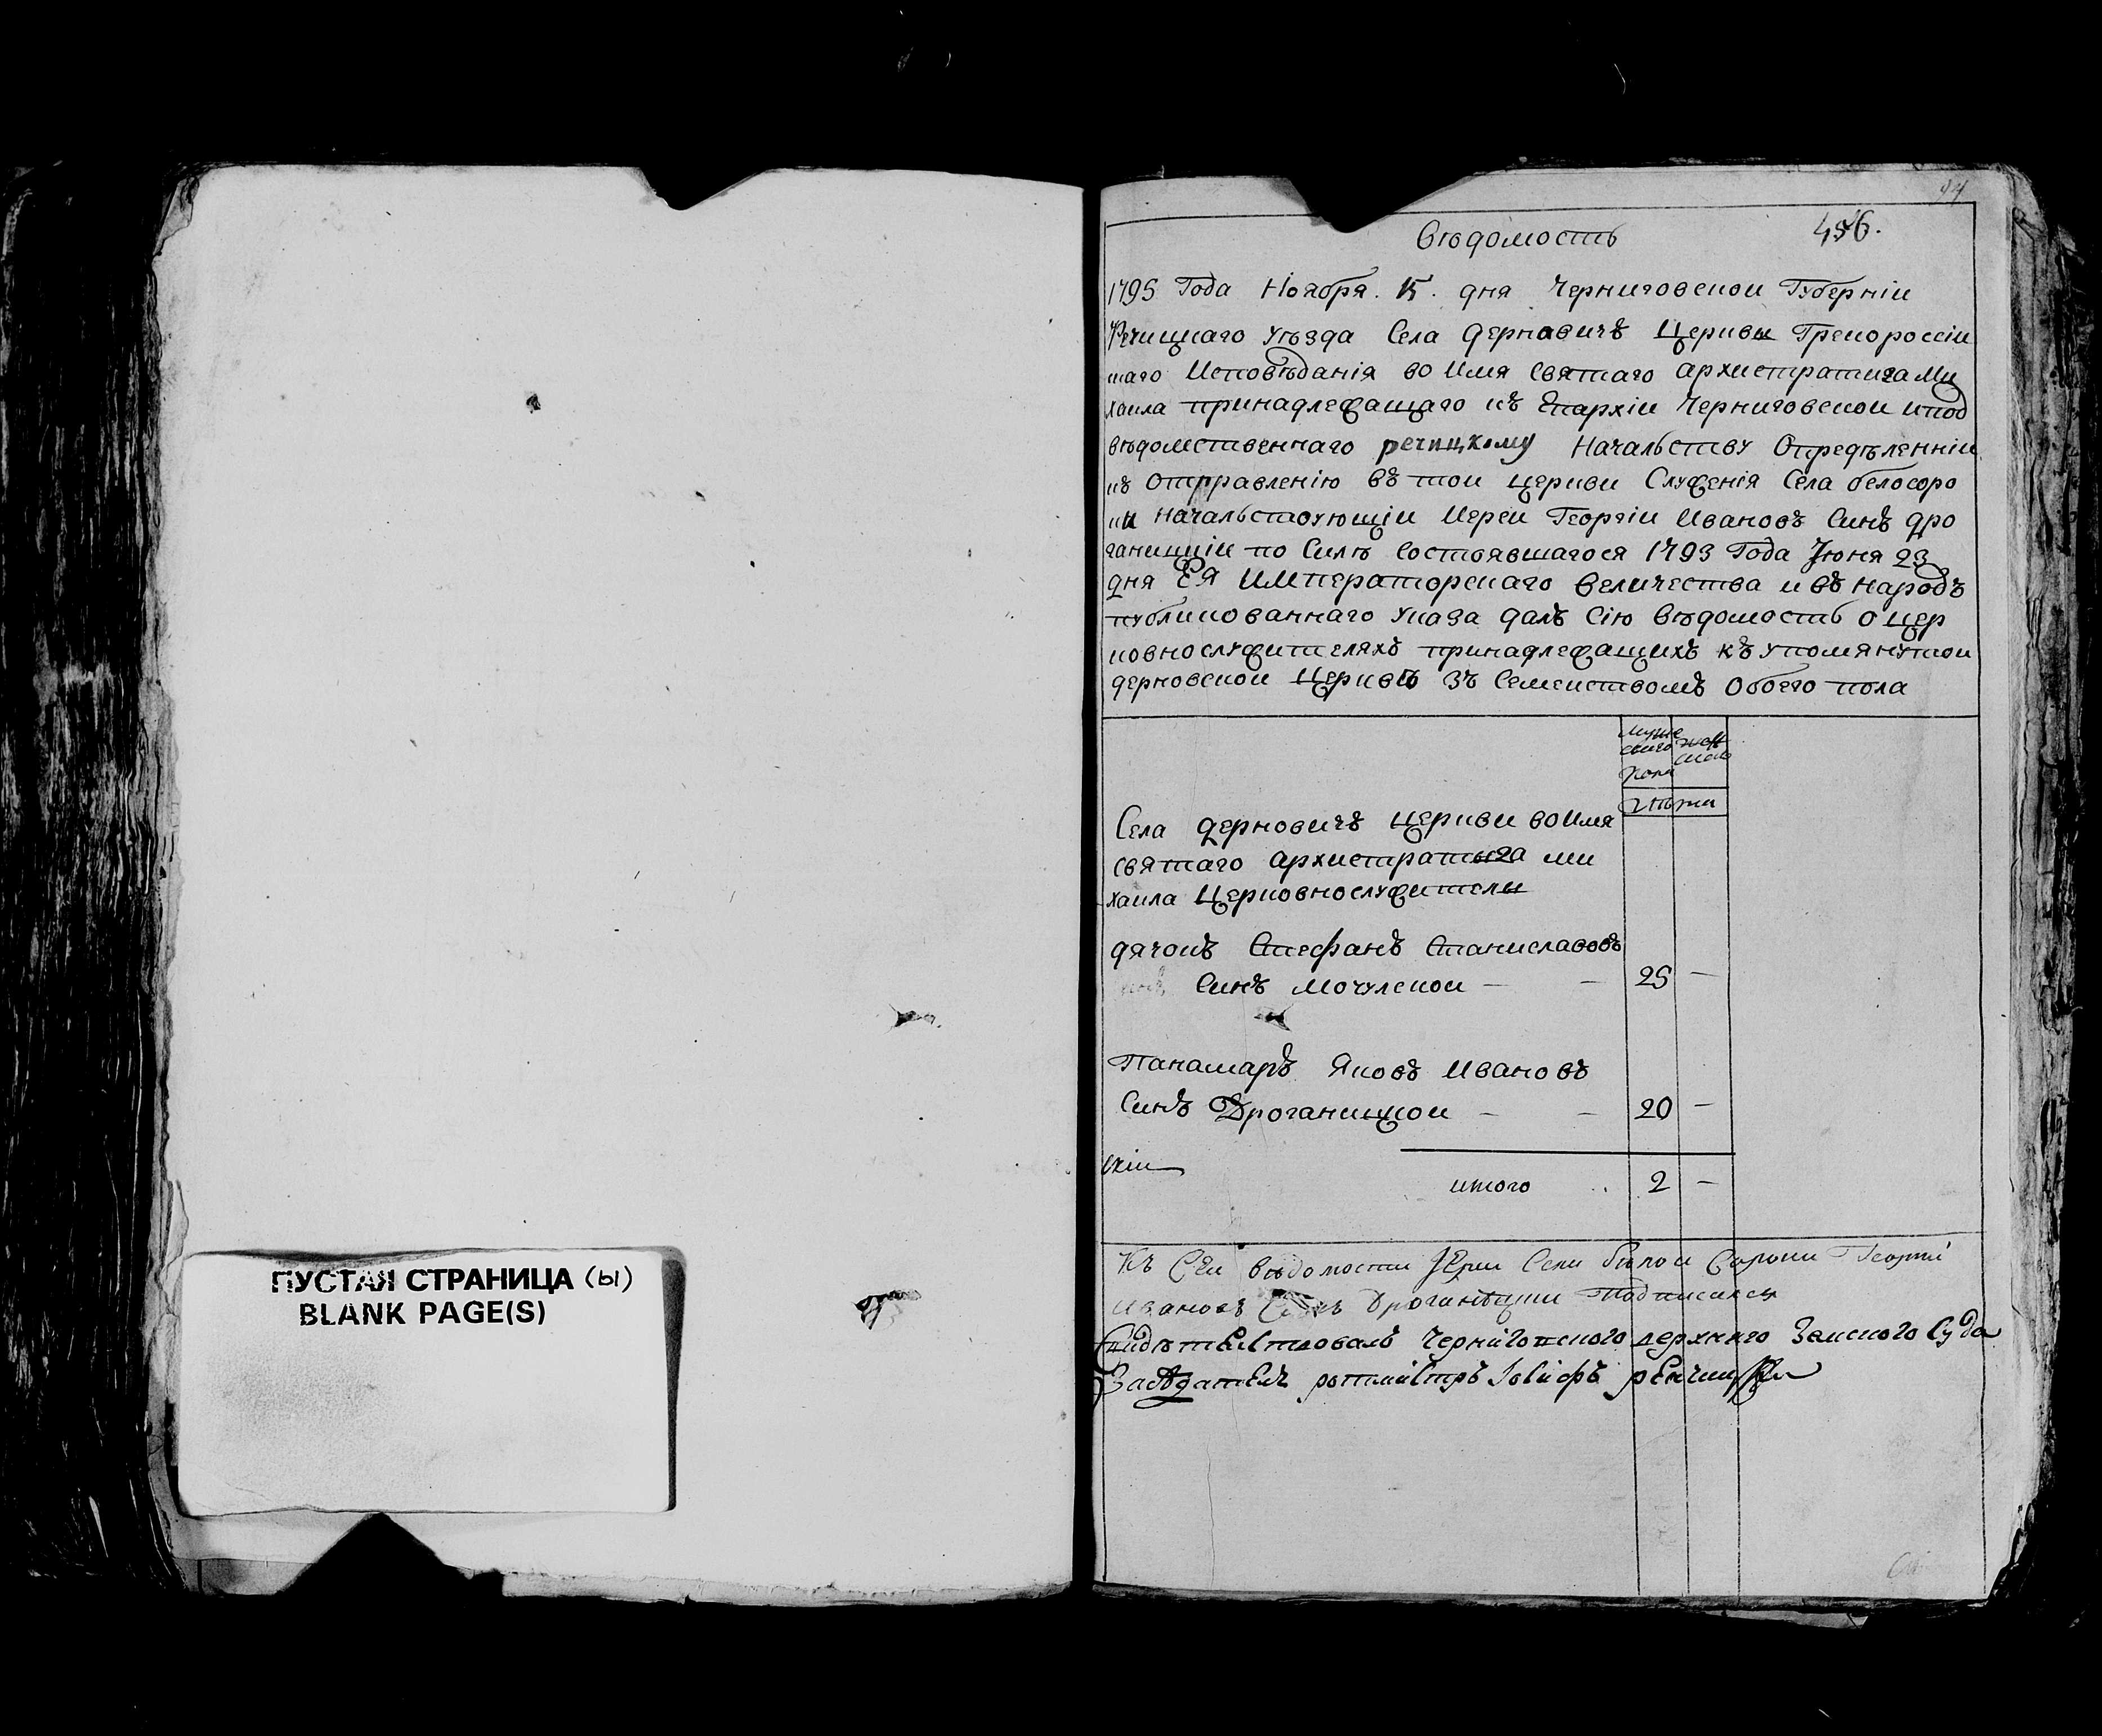 ПУСТАЯ СТРАНИЦА (ы)
BLANK PAGE(S)
44
Вѣдомость
1795 Года Ноября. 15. дня Черниговской Губерніи
Речицкаго уѣзда Села Дерновичъ Церкви Грекороссій
скаго Исповѣданія во Имя Святаго архистратига Ми
хаила принадлежащаго къ Епархіи Черниговской и под
вѣдомственнаго речицкому Начальству Опредѣленній
къ Отправленію въ той церкви Служенія Села белосоро
ки Начальствующій Иерей Георгій Ивановъ Синъ Дро
ганицкій по Силѣ Состоявшагося 1793 Года Июня 23
дня Ея Императорскаго Величества и въ народъ
публикованнаго Указа далъ Сію Вѣдомость о цер
ковнослужителяхъ принадлежащихъ къ упомянутой
дерновской Церквѣ зъ Семействомъ Обоего пола
муже
скаго
пола
жен
ска
лѣта
Села Дерновичъ церкви во Имя
святаго архистратыга ми
хаила Церковнослужители
дячокъ Стефанъ Станиславовъ
Синъ Мочулской — — 25 —
Панамаръ Яковъ Ивановъ
Синъ Дроганицкой — — 20 —
скій
итого 2 —
Къ Сей вѣдомости Іерей Села бѣлой Сороки Георгій
Ивановъ Синъ Дроганѣцкий Подписался
Свидѣтелствовалъ Чернѣговского верхнего Земского Суда
Засѣдателъ ротмистръ Іосифъ